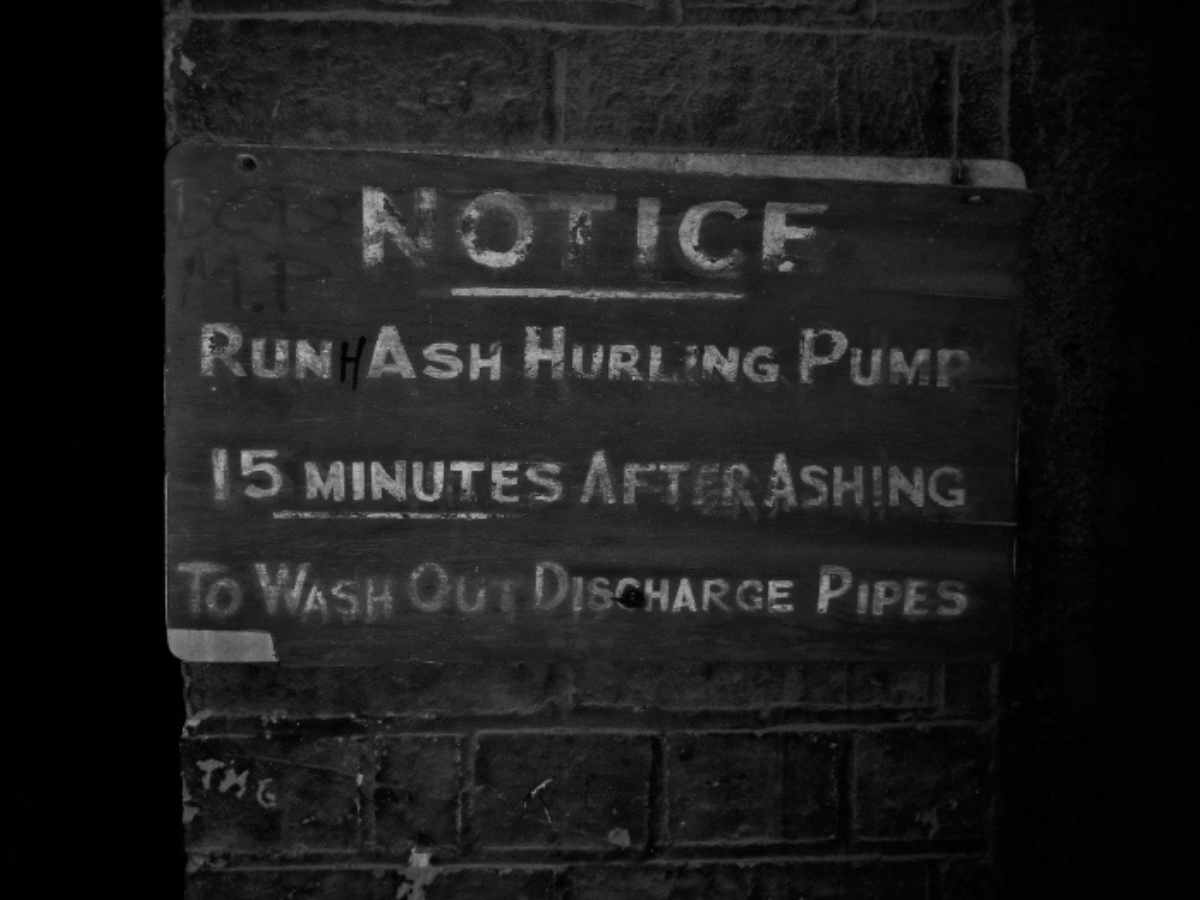 NOTICE
RUN H ASH HURLING PUMP
15 MINUTES AFTER ASHING
TO WASH OUT DISCHARGE PIPES
TMG